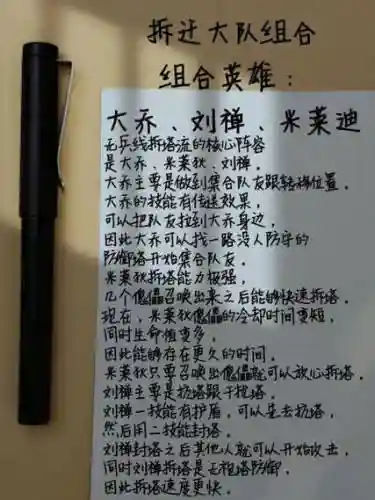 拆迁大队组合
组合英雄：
大乔、刘禅、米莱迪
无兵线拆塔流的核心阵容
是大乔、米莱狄、刘禅，
大乔主要是做到集合队友跟转移位置，
大乔的技能有传送效果，
可以把队友拉到大乔身边，
因此大乔可以找一路没人防守的
防御塔开始集合队友，
米莱狄拆塔能力极强，
几个傀儡召唤出来之后能够快速拆塔，
现在，米莱狄傀儡的冷却时间变短，
同时生命值变多，
因此能够存在更久的时间，
米莱狄只要召唤出傀儡就可以放心拆塔，
刘禅主要是抗塔跟干扰塔，
刘禅一技能有护盾，可以先去抗塔，
然后用二技能封塔，
刘禅封塔之后其他人就可以开始攻击，
同时刘禅拆塔是无视塔防御，
因此拆塔速度更快，